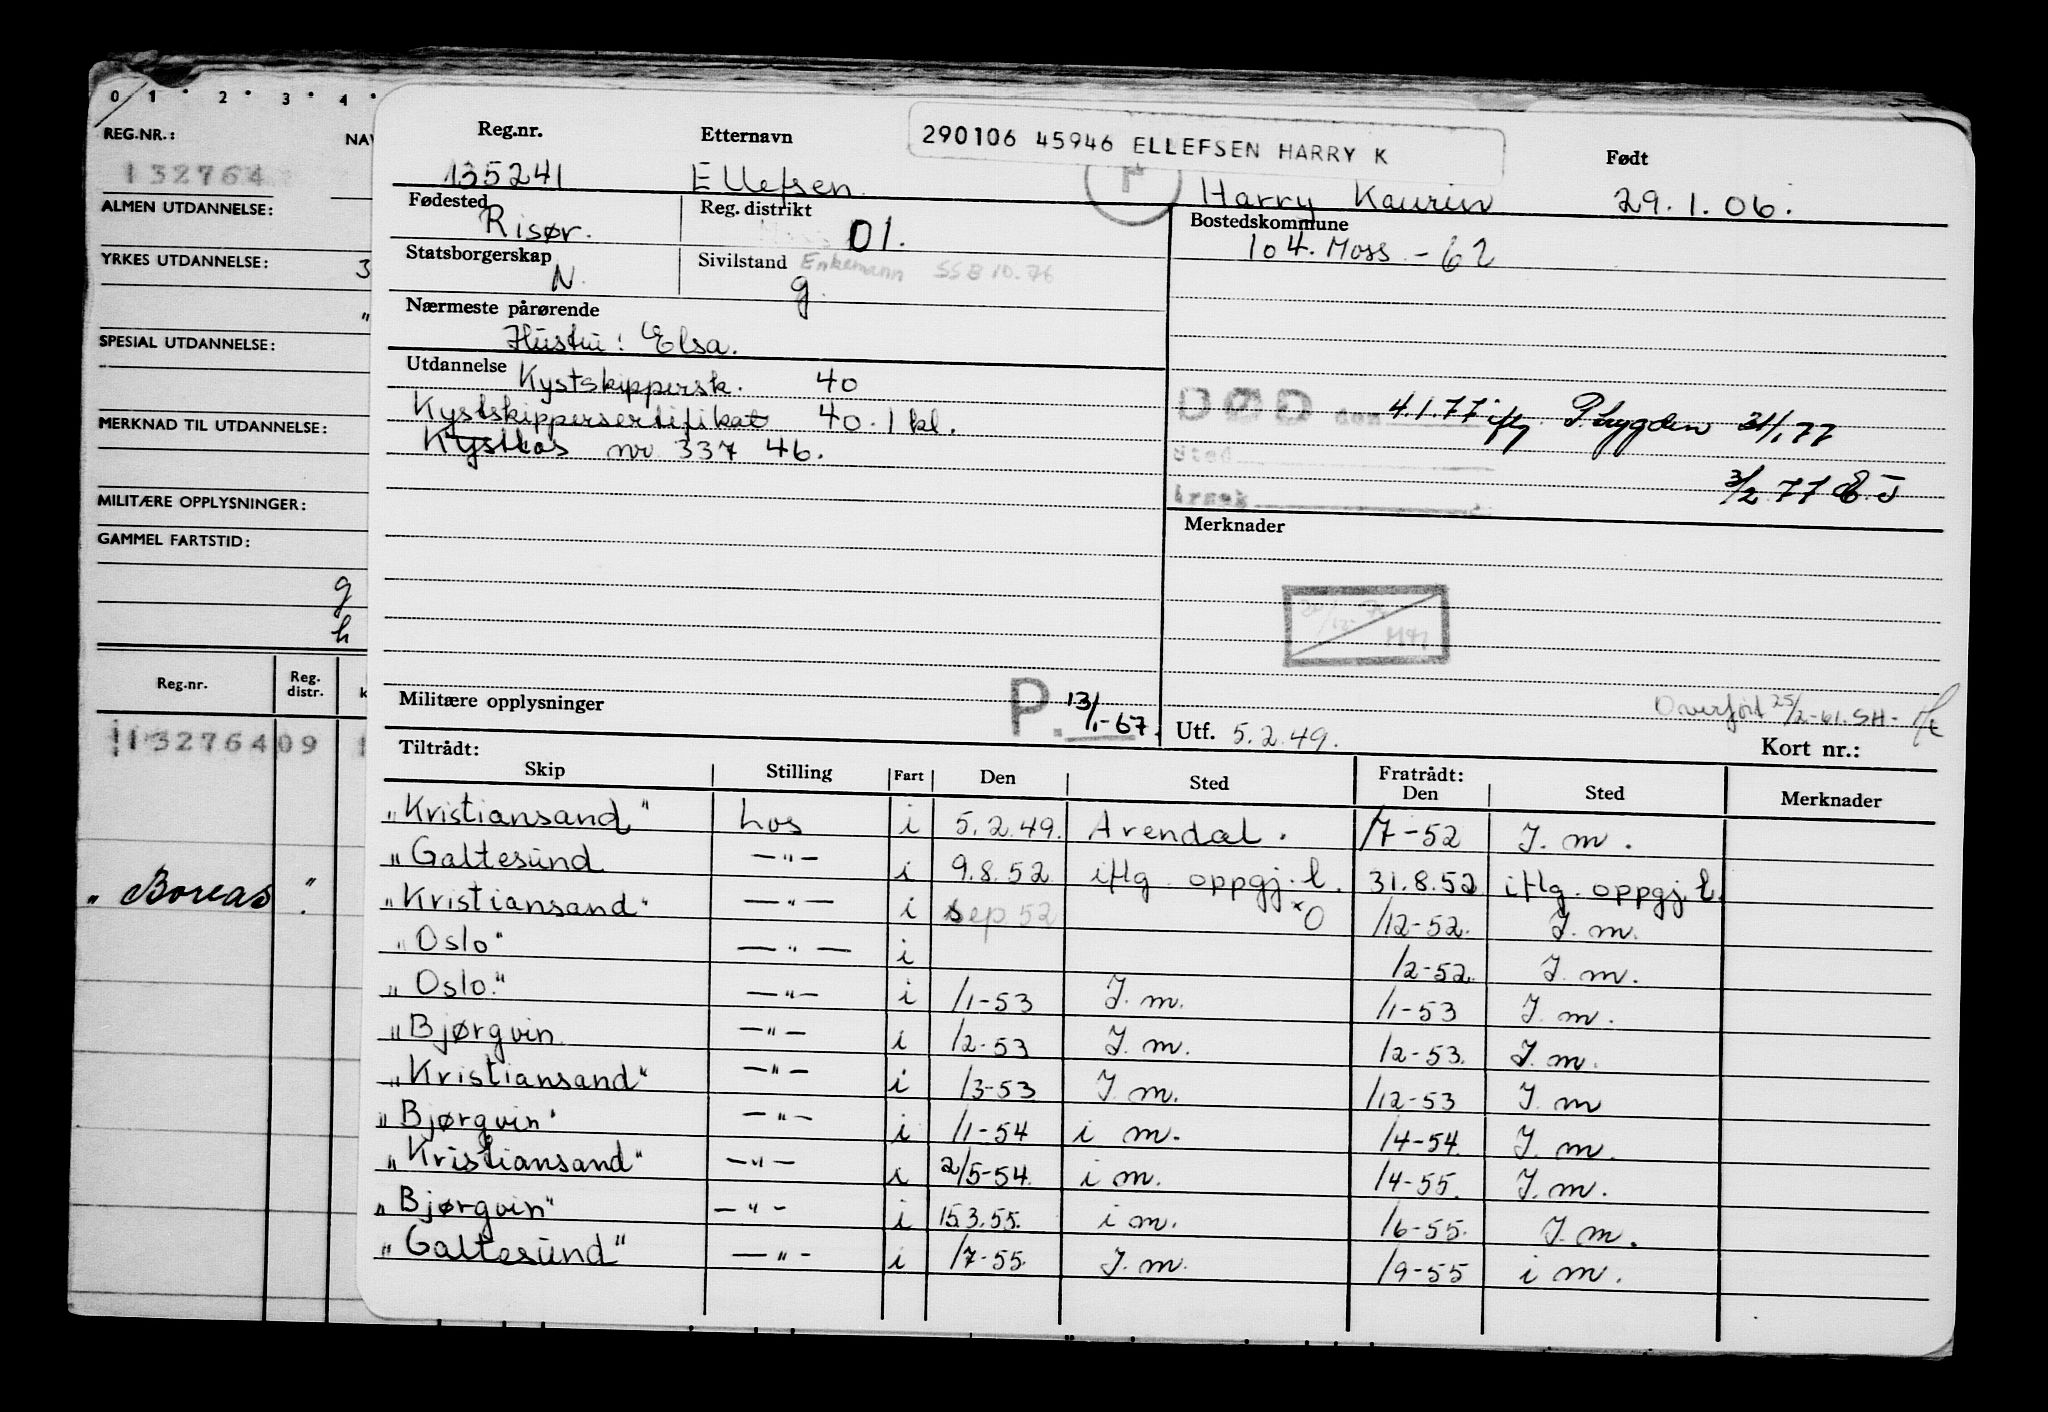 0 1 2 3 4
REG.NR.:
NAV
132764
ALMEN UTDANNELSE:
YRKES UTDANNELSE: 3
"
SPESIAL UTDANNELSE:
MERKNAD TIL UTDANNELSE:
MILITÆRE OPPLYSNINGER:
GAMMEL FARTSTID:
g
h
Reg.nr. Reg. distr. k
13276409 1
"Boreas"
290106 45946 ELLEFSEN HARRY K
Reg.nr. Etternavn Født
135241 Ellefsen Harry Kaurin 29.1.06.
Fødested Reg. distrikt Bostedskommune
Risør. 01. 104. Moss - 62
Statsborgerskap Sivilstand Enkemann SSB 10.76
N. g.
Nærmeste pårørende
Hustru: Elsa.
Utdannelse
Kystskippersk. 40
Kystskippersertifikat 40. 1 kl.
Kystlos nr 337 46.
DØD den 4.1.77 iflg. P.trygden 31/1 77
Sted
3/2 77 E.J
Årsak
Merknader
Overført 25/2-61. SH.
Militære opplysninger P. 13/1-67. Utf. 5.2.49. Kort nr.:
Tiltrådt: Fratrådt:
Skip Stilling Fart Den Sted Den Sted Merknader
"Kristiansand" Los i 5.2.49. Arendal. /7-52 J.m.
"Galtesund —"— i 9.8.52 iflg. oppgj.l. 31.8.52 iflg. oppgj.l.
"Kristiansand" —"— i sep 52 *O /12-52. J.m.
"Oslo" —"— i /2-52. J.m.
"Oslo." —"— i /1-53 J.m. /1-53 J.m.
"Bjørgvin —"— i /2-53 J.m. /2-53. J.m.
"Kristiansand" —"— i /3-53 J.m. /12-53 J.m
"Bjørgvin" —"— i /1-54 i m. /4-54. J.m.
"Kristiansand" —"— i 2/5-54. i m. /4-55. J.m.
"Bjørgvin" —"— i 15.3.55. i m. /6-55. J.m.
"Galtesund" —"— i /7-55. J.m. /9-55 i m.